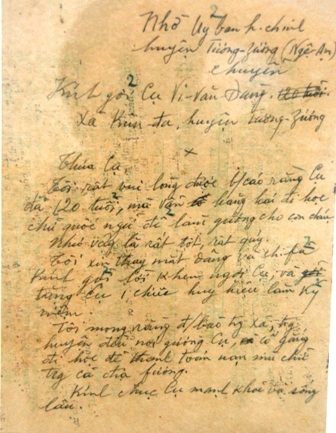 Nhờ Uỷ ban h. chính
huyện Tương-Zương (Nghệ-An)
chuyển
Kính gởi Cụ Vi-Văn-Dang, 120 tuổi
Xã Kim-đa, huyện Tương-Zương
Thưa Cụ,
Tôi rất vui lòng được b/cáo rằng Cụ
đã 120 tuổi, mà vẫn hăng hái đi học
chữ quốc ngữ, để làm gương cho con cháu
Như vậy là rất tốt, rất quý.
Tôi xin thay mặt Đảng và ch. fủ
kính gởi lời khen ngợi Cụ, và
tặng Cụ 1 chiếc huy hiệu làm kỷ
niệm.
Tôi mong rằng đ/bào tg xã, tg
huyện đều noi gương Cụ, cố gắng
đi học để thanh toán nạn mù chữ
tg cả địa fương.
Kính chúc Cụ mạnh khoẻ và sống
lâu.